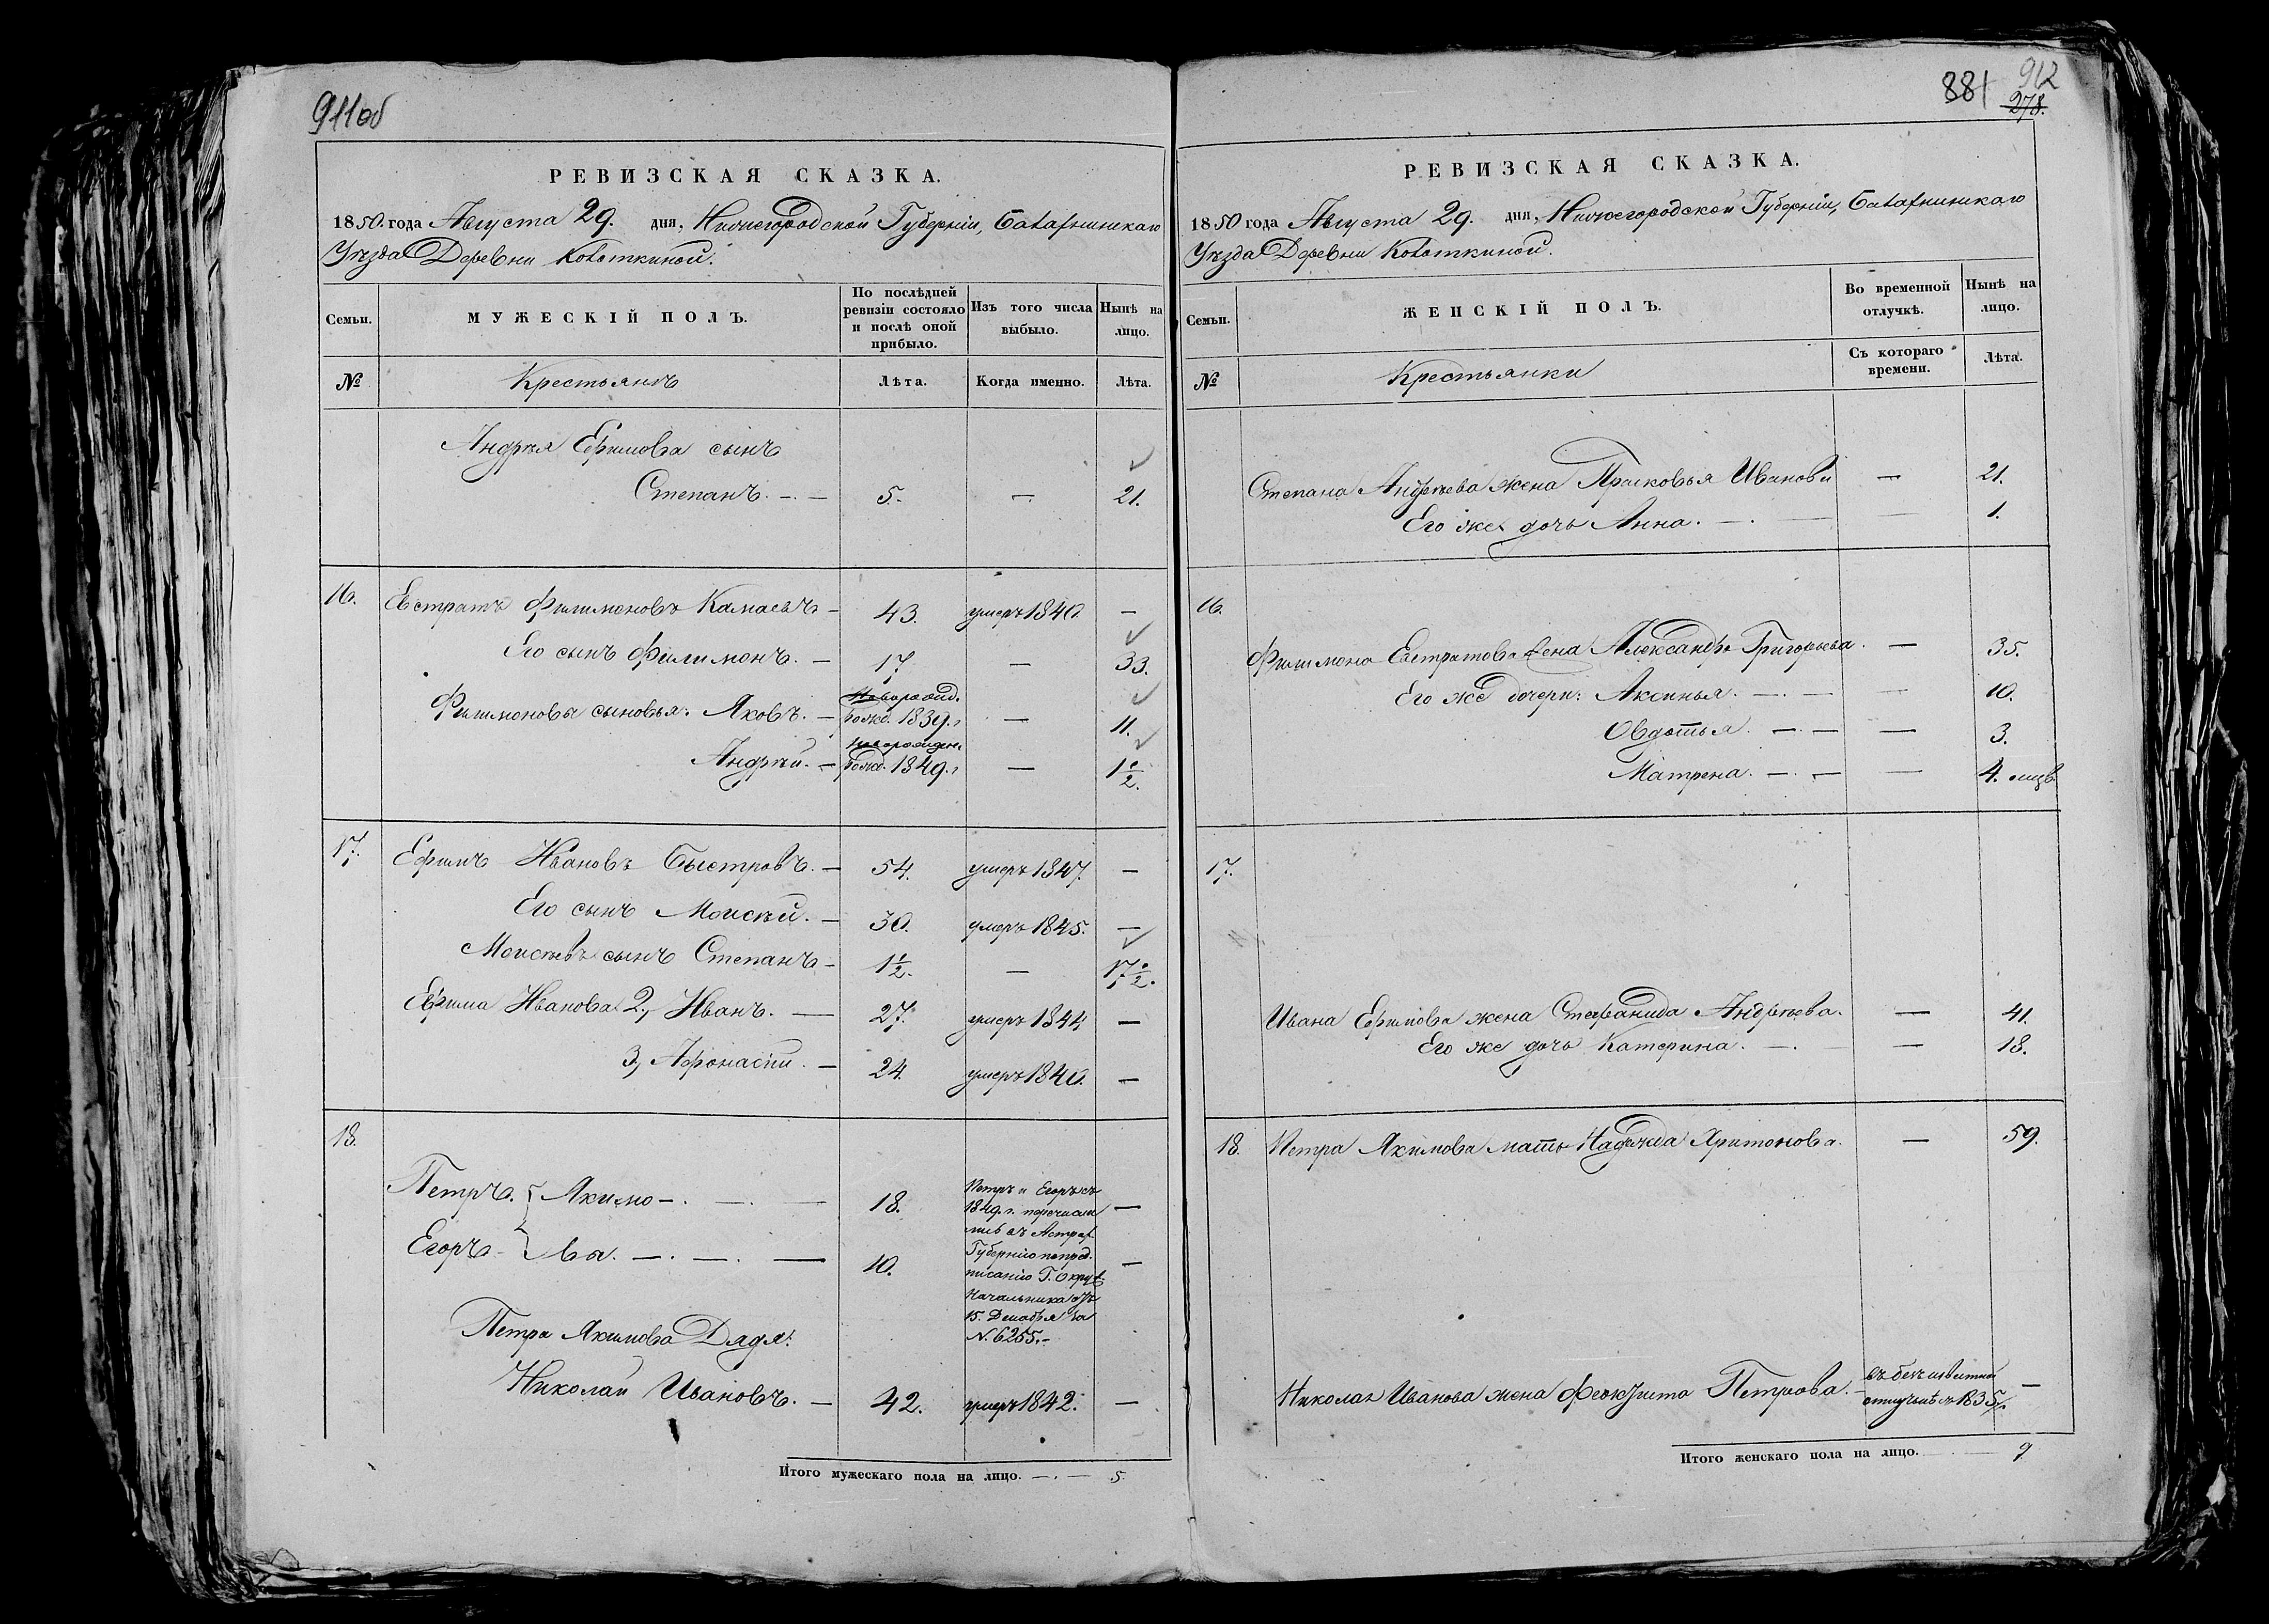 911об
РЕВИЗСКАЯ СКАЗКА.
1850. года Августа 29. дня, Нижегородской Губерніи, Балахнинскаго
Уѣзда Деревни Колоткиной.
Семьи.
МУЖЕСКІЙ ПОЛЪ.
По послѣдней ревизіи состояло и послѣ оной прибыло.
Изъ того числа выбыло.
Нынѣ на лицо.
№
Крестьянъ
Лѣта.
Когда именно.
Лѣта.
Андрея Ефимова сынъ
Степанъ. — 5. — 21.
16. Евстратъ Филимоновъ Камаевъ — 43. умеръ 1840. —
Его сынъ Филимонъ. — 17 — 33.
Филимоновы сыновья. Яковъ. — Новорожд. рожд. 1839. г. — 11.
Андрей. — новорожден. рожд. 1849. г. — 1 1/2.
17. Ефимъ Ивановъ Быстровъ. — 54. умеръ 1847. —
Его сынъ Моисей. — 30. умеръ 1845. —
Моисеевъ сынъ Степанъ — 1 1/2. — 17 1/2.
Ефима Иванова 2, Иванъ. — 27. умеръ 1844. —
3, Афонасій. — 24. умеръ 1840. —
18.
Петръ. { Акимо — 18.
Егоръ { ва. — 10.
Петръ и Егоръ въ
1849. г. перечисли
лись въ Астрах.
Губернію по пред.
писанію Г. Окруж.
Начальника отъ
15. Декабря за
N. 6255. —
Петра Акимова Дядя.
Николай Ивановъ. — 42. умеръ 1842. —
Итого мужескаго пола на лицо. — 5.
881 912
278.
РЕВИЗСКАЯ СКАЗКА.
1850 года Августа 29. дня, Нижегородской Губерніи, Балахнинскаго
Уѣзда Деревни Колоткиной.
Семьи.
ЖЕНСКІЙ ПОЛЪ.
Во временной отлучкѣ.
Нынѣ на лицо.
№
Крестьянки
Съ котораго времени.
Лѣта.
Степана Андреева жена Прасковья Иванова — 21.
Его же дочь Анна. — 1.
16.
Филимона Евстратова жена Александра Григорьева. — 35.
Его же дочери: Аксинья. — 10.
Овдотья. — 3.
Матрена. — 4. мцѣ
17.
Ивана Ефимова жена Стефанида Андреева. — 41.
Его же дочь Катерина. — 18.
18. Петра Акимова мать Надежда Харитонова. — 59.
Николая Иванова жена Феоктиста Петрова. — въ безъизвѣстной отлучкѣ съ 1835 г. —
Итого женскаго пола на лицо. — 9